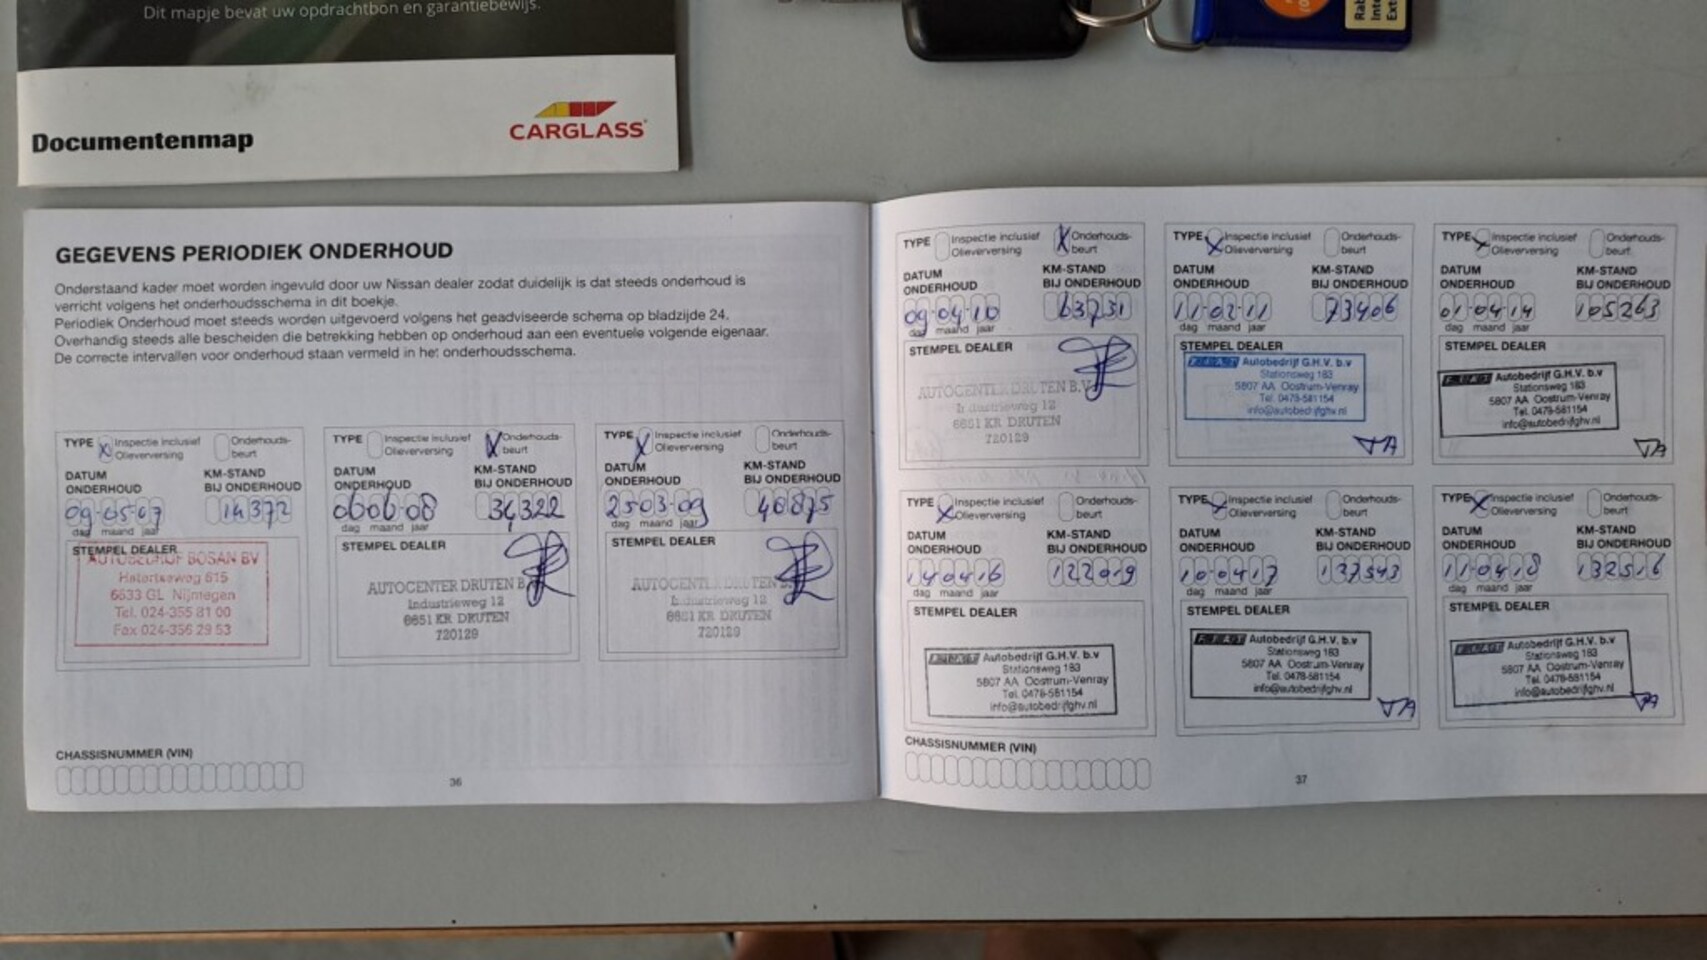 Dit mapje bevat uw opdrachtbon en garantiebewijs.
Documentenmap
CARGLASS
Rab
Inte
Ext
GEGEVENS PERIODIEK ONDERHOUD
Onderstaand kader moet worden ingevuld door uw Nissan dealer zodat duidelijk is dat steeds onderhoud is
verricht volgens het onderhoudsschema in dit boekje.
Periodiek Onderhoud moet steeds worden uitgevoerd volgens het geadviseerde schema op bladzijde 24.
Overhandig steeds alle bescheiden die betrekking hebben op onderhoud aan een eventuele volgende eigenaar.
De correcte intervallen voor onderhoud staan vermeld in het onderhoudsschema.
TYPE X Inspectie inclusief Olieverversing Onderhouds-beurt
DATUM ONDERHOUD KM-STAND BIJ ONDERHOUD
09-05-07 14372
dag maand jaar
STEMPEL DEALER
AUTOBEDRIJF BOSAN BV
Hatertseweg 615
6533 GL Nijmegen
Tel. 024-355 81 00
Fax 024-356 29 53
TYPE Inspectie inclusief Olieverversing X Onderhouds-beurt
DATUM ONDERHOUD KM-STAND BIJ ONDERHOUD
06-06-08 34322
dag maand jaar
STEMPEL DEALER
AUTOCENTER DRUTEN B.V.
Industrieweg 12
6651 KR DRUTEN
720129
TYPE X Inspectie inclusief Olieverversing Onderhouds-beurt
DATUM ONDERHOUD KM-STAND BIJ ONDERHOUD
25-03-09 48875
dag maand jaar
STEMPEL DEALER
AUTOCENTER DRUTEN
Industrieweg 12
6651 KR DRUTEN
720129
CHASSISNUMMER (VIN)
36
TYPE Inspectie inclusief Olieverversing X Onderhouds-beurt
DATUM ONDERHOUD KM-STAND BIJ ONDERHOUD
09-04-10 63731
dag maand jaar
STEMPEL DEALER
AUTOCENTER DRUTEN B.V.
Industrieweg 12
6651 KR DRUTEN
720129
TYPE X Inspectie inclusief Olieverversing Onderhouds-beurt
DATUM ONDERHOUD KM-STAND BIJ ONDERHOUD
11-02-11 73406
dag maand jaar
STEMPEL DEALER
FIAT Autobedrijf G.H.V. b.v
Stationsweg 183
5807 AA Oostrum-Venray
Tel. 0478-581154
info@autobedrijfghv.nl
TYPE X Inspectie inclusief Olieverversing Onderhouds-beurt
DATUM ONDERHOUD KM-STAND BIJ ONDERHOUD
01-04-14 105263
dag maand jaar
STEMPEL DEALER
FIAT Autobedrijf G.H.V. b.v
Stationsweg 183
5807 AA Oostrum-Venray
Tel. 0478-581154
info@autobedrijfghv.nl
TYPE X Inspectie inclusief Olieverversing Onderhouds-beurt
DATUM ONDERHOUD KM-STAND BIJ ONDERHOUD
14-04-16 122019
dag maand jaar
STEMPEL DEALER
FIAT Autobedrijf G.H.V. b.v
Stationsweg 183
5807 AA Oostrum-Venray
Tel. 0478-581154
info@autobedrijfghv.nl
TYPE X Inspectie inclusief Olieverversing Onderhouds-beurt
DATUM ONDERHOUD KM-STAND BIJ ONDERHOUD
10-04-17
dag maand jaar
STEMPEL DEALER
FIAT Autobedrijf G.H.V. b.v
Stationsweg 183
5807 AA Oostrum-Venray
Tel. 0478-581154
info@autobedrijfghv.nl
TYPE X Inspectie inclusief Olieverversing Onderhouds-beurt
DATUM ONDERHOUD KM-STAND BIJ ONDERHOUD
11-04-18 132516
dag maand jaar
STEMPEL DEALER
FIAT Autobedrijf G.H.V. b.v
Stationsweg 183
5807 AA Oostrum-Venray
Tel. 0478-581154
info@autobedrijfghv.nl
CHASSISNUMMER (VIN)
37